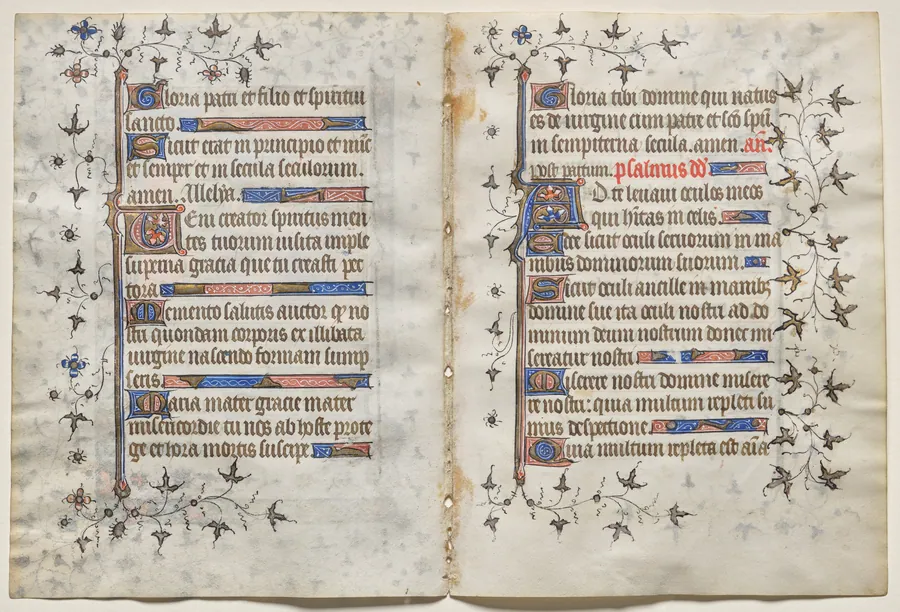 Gloria patri et filio et spiritui
sancto
Sicut erat in principio et nūc
et semper et in secula seculorum.
amen. Alleluya.
Veni creator spiritus men
tes tuorum uisita imple
superna gracia que tu creasti pec
tora
Memento salutis auctor qꝫ no
stri quondam corporis ex illibata
uirgine nascendo formam sump
seris
Maria mater gracie mater
misericordie tu nos ab hoste prote
ge et hora mortis suscipe
Gloria tibi domine qui natus
es de uirgine cum patre et sc̄o spū.
in sempiterna secula. amen. an̄.
post partum. psalmus dd̄
Ad te leuaui oculos meos
qui hītas in celis.
Ecce sicut oculi seruorum in ma
nibus dominorum suorum.
Sicut oculi ancille in manibꝫ
domine sue ita oculi nostri ad do
minum deum nostrum donec mi
sereatur nostri
Miserere nostri domine misere
re nostri: quia multum repleti su
mus despectione
Quia multum repleta est aīa